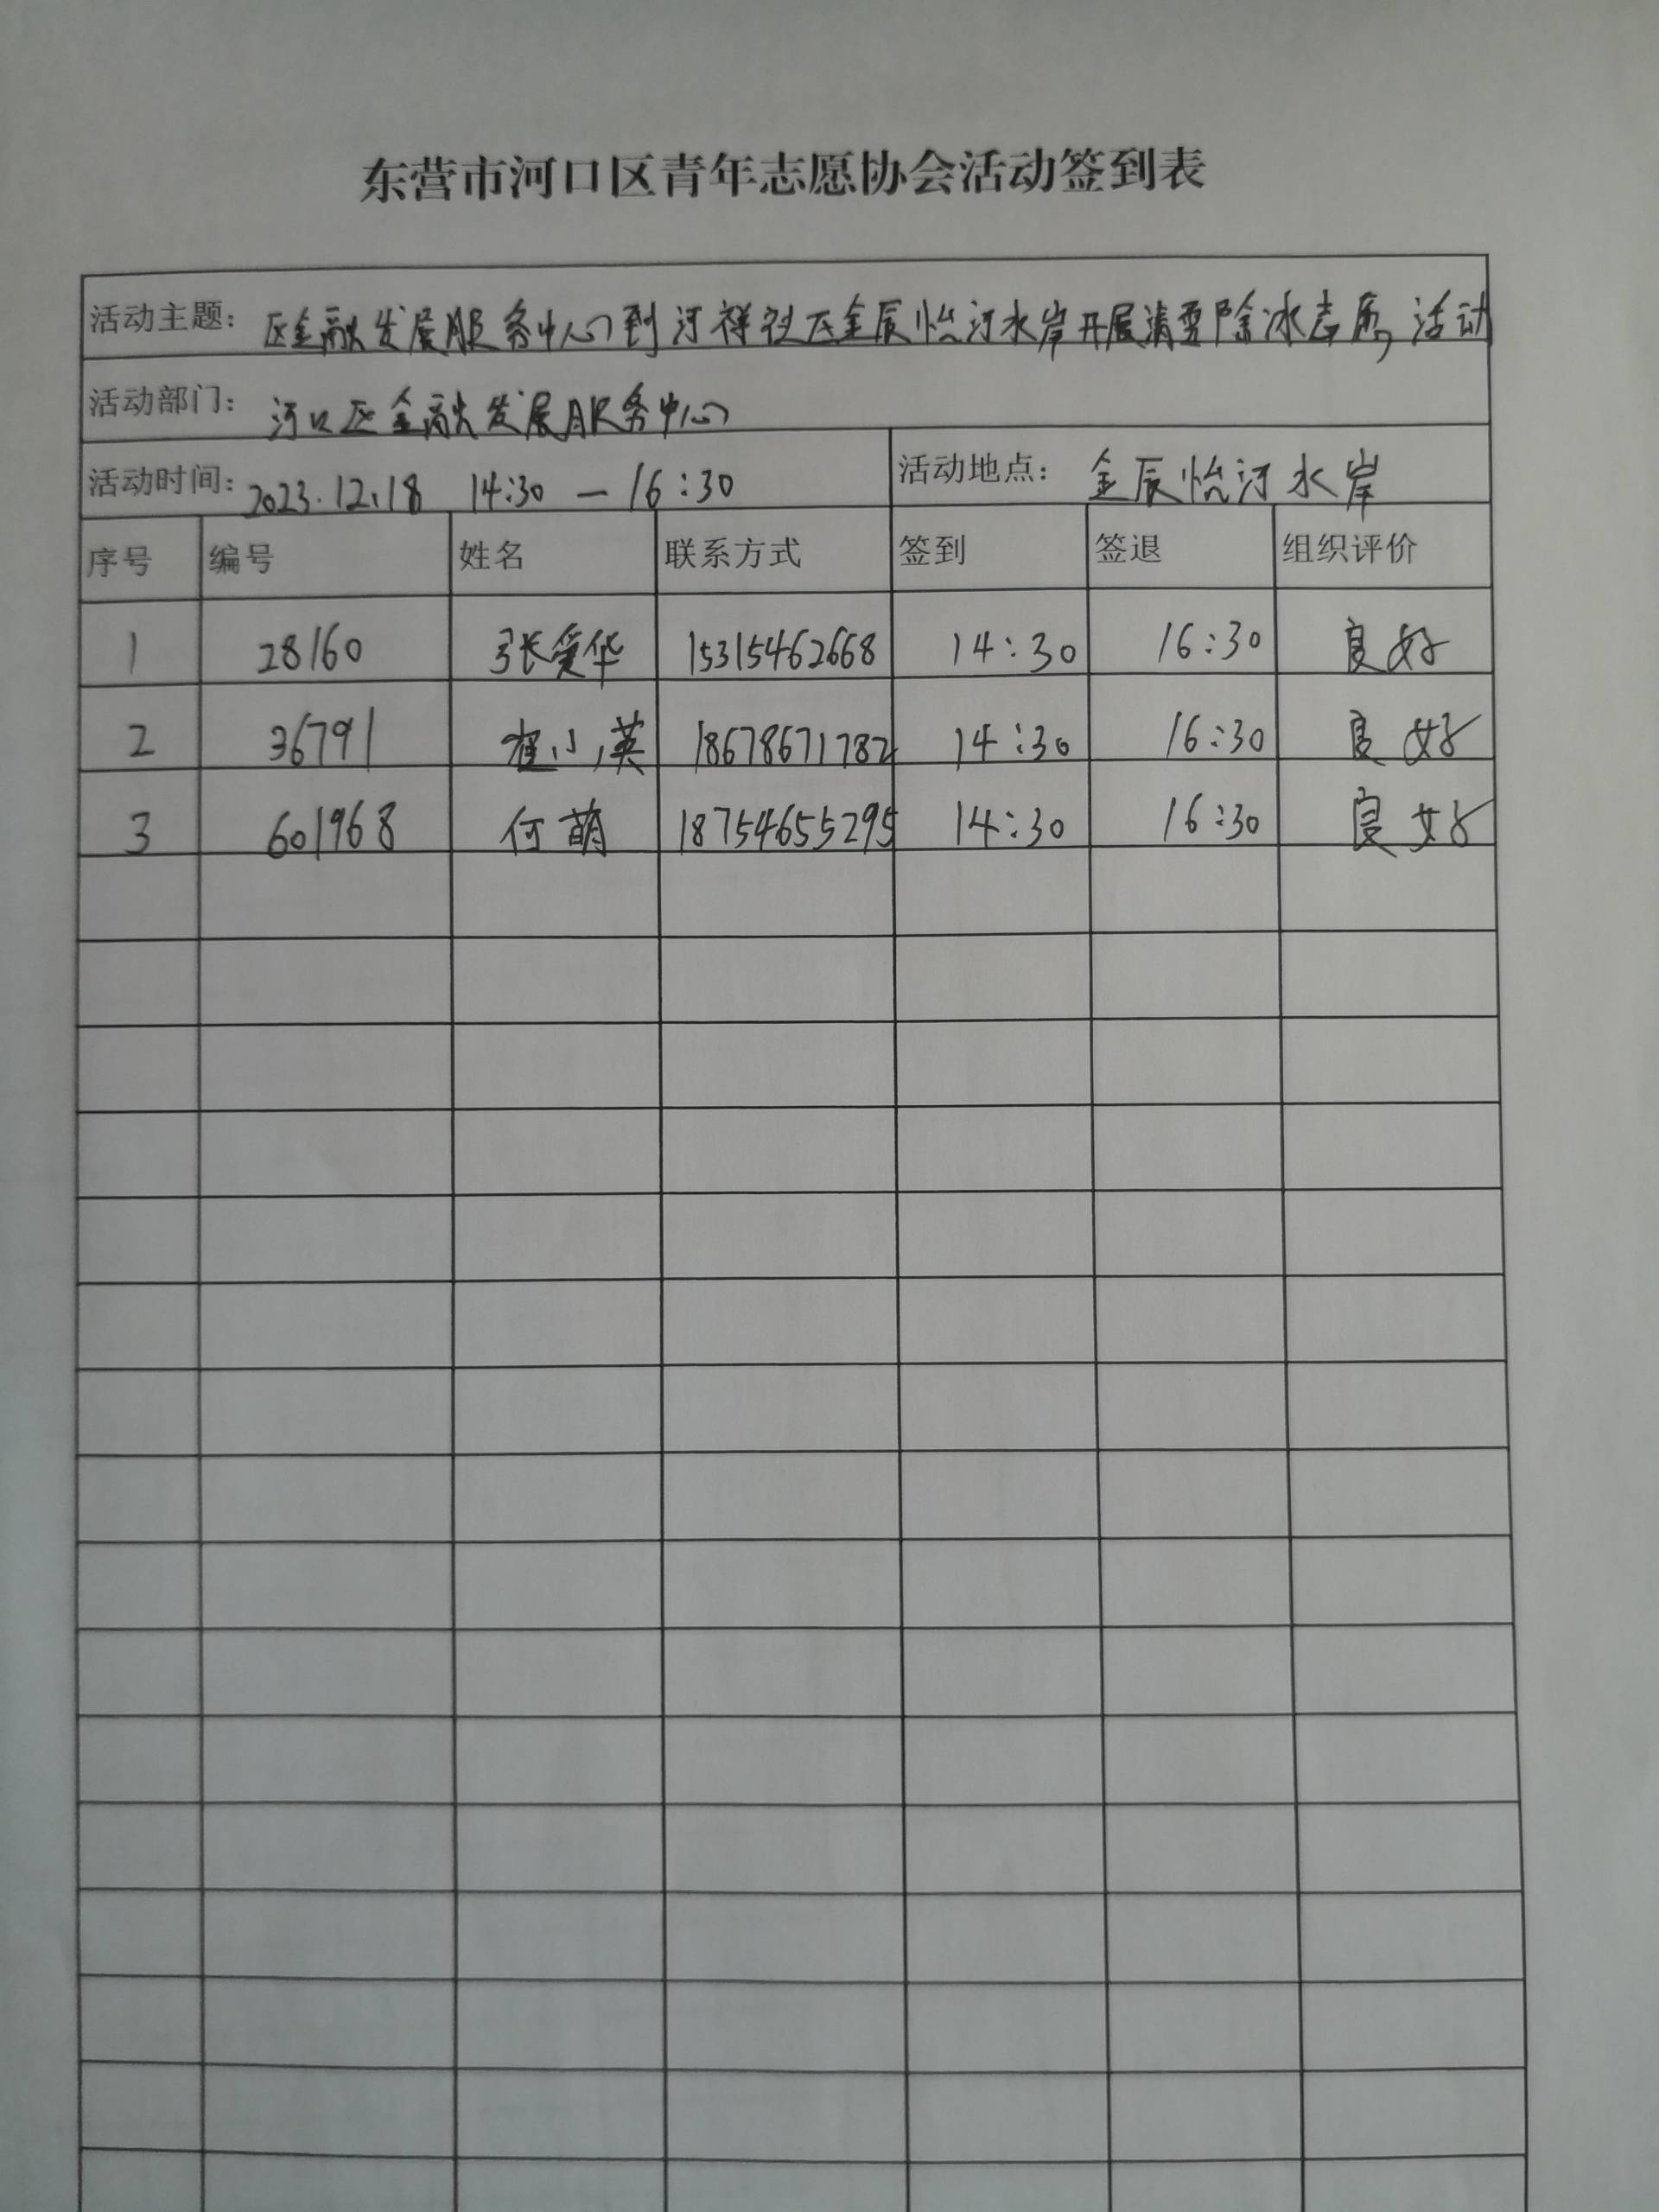 东营市河口区青年志愿协会活动签到表
活动主题: 区金融发展服务中心到河祥社区金辰怡河水岸开展清雪除冰志愿活动
活动部门: 河口区金融发展服务中心
活动时间: 2023.12.18 14:30 — 16:30 活动地点: 金辰怡河水岸
序号 编号 姓名 联系方式 签到 签退 组织评价
1 28160 张爱华 15315462668 14:30 16:30 良好
2 36791 小英 18678671782 14:30 16:30 良好
3 601968 何萌 18754655295 14:30 16:30 良好